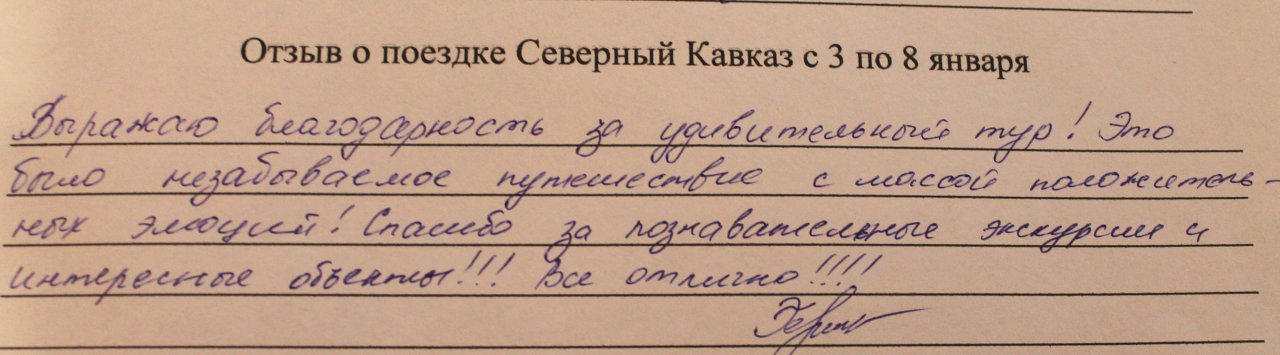 Отзыв о поездке Северный Кавказ с 3 по 8 января
Выражаю благодарность за удивительный тур! Это
было незабываемое путешествие с массой положитель-
ных эмоций! Спасибо за познавательные экскурсии и
интересные объекты!!! Все отлично!!!!